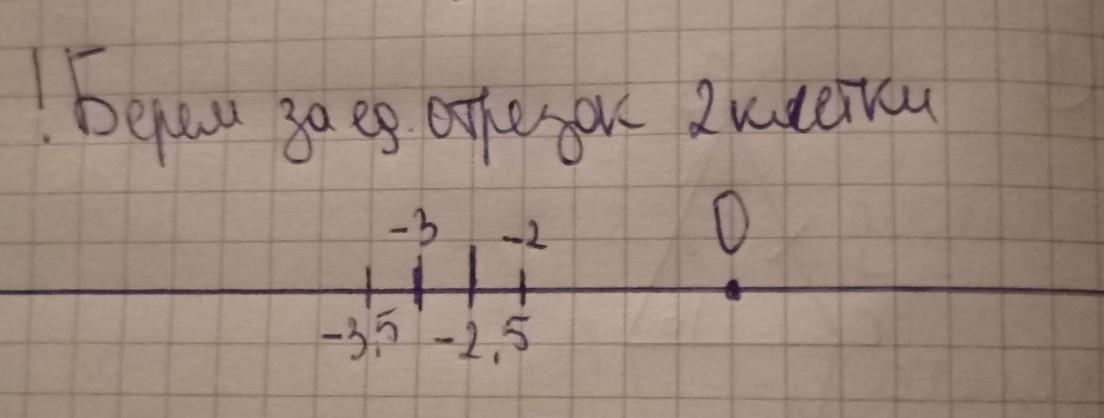 ! Берем за ед. отрезок 2 клетки
-3 -2 0
-3,5 -2,5